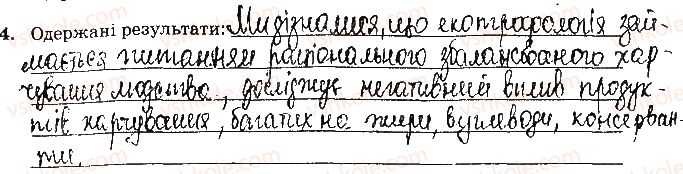 4. Одержані результати: Ми дізналися, що екотрофологія зай-
мається питанням раціонального збалансованого хар-
чування людства, досліджує негативний вплив продук-
тів харчування, багатих на жири, вуглеводи, консерван-
ти.